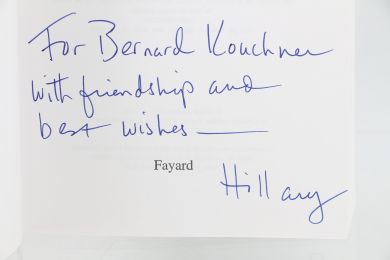 For Bernard Kouchner
with friendship and
best wishes —
Fayard
Hillary